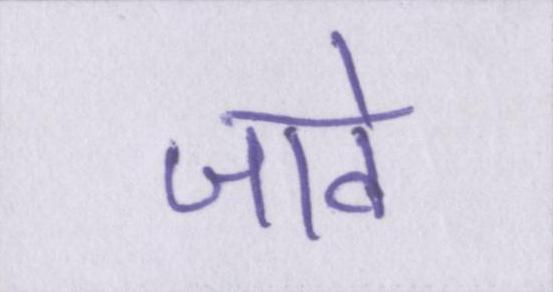 जावे